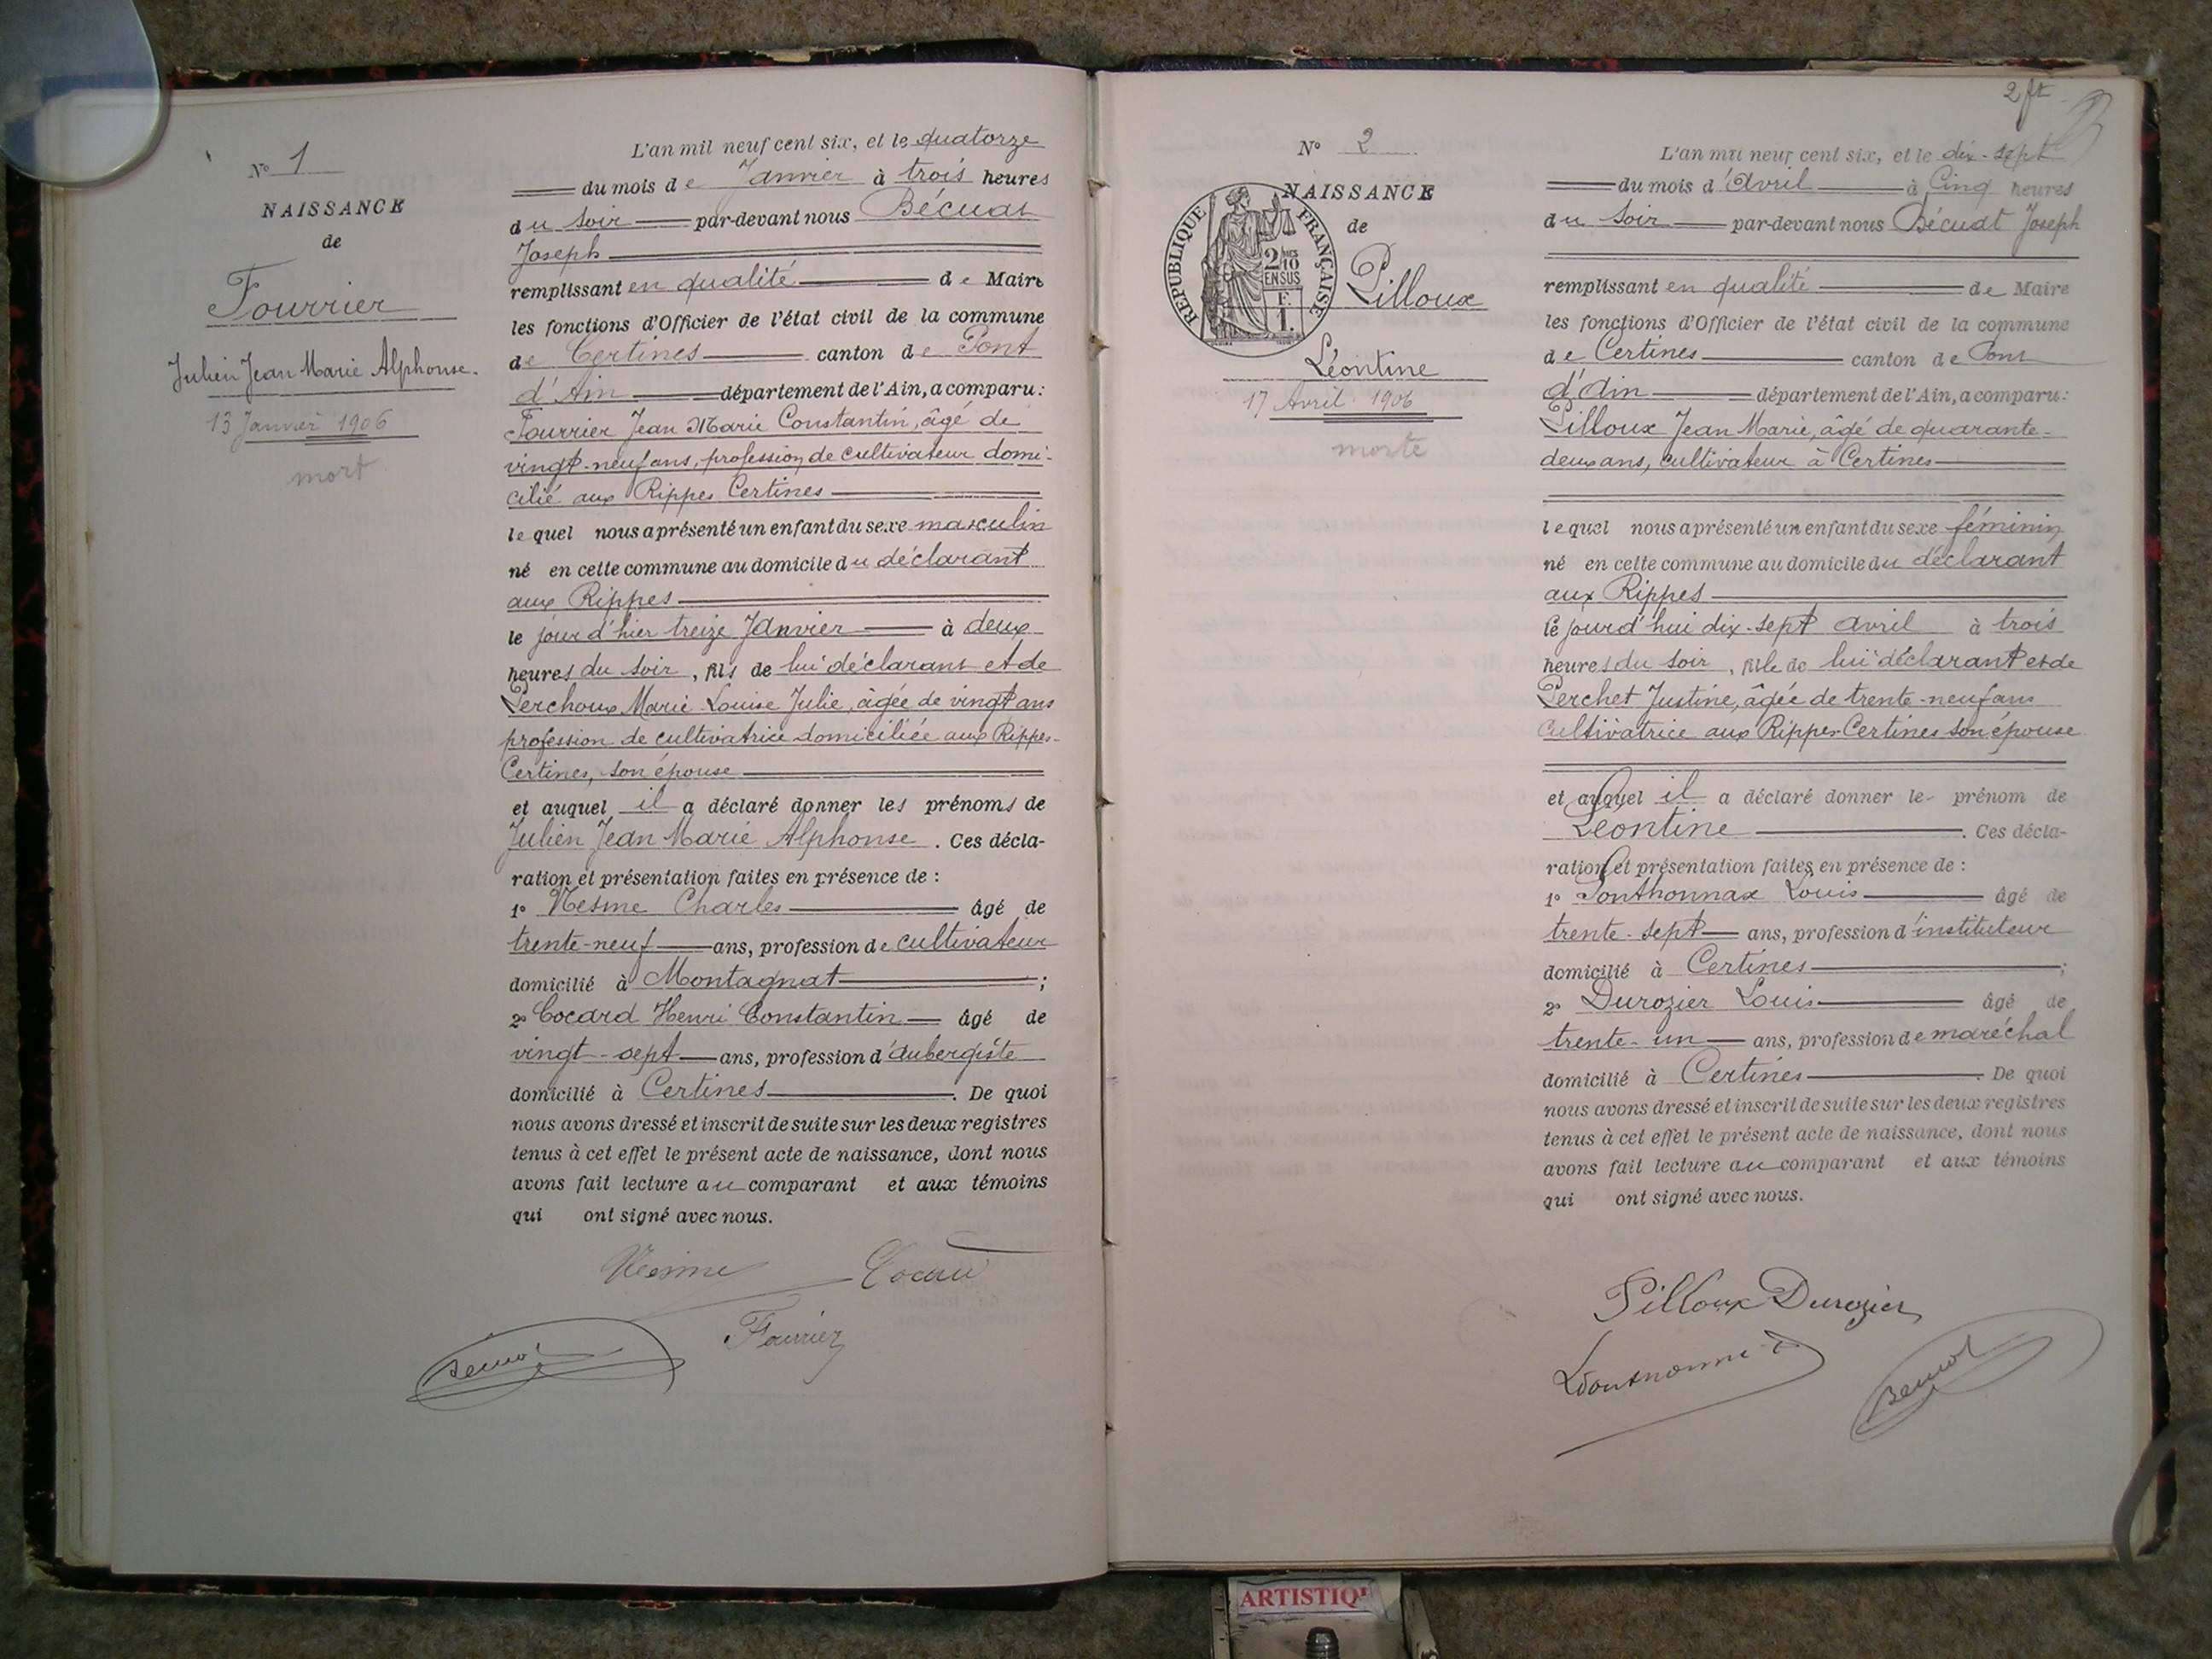 Nº 1
NAISSANCE
de
Fourrier
Julien Jean Marie Alphonse.
13 Janvier 1906
mort
L'an mil neuf cent six, et le quatorze
du mois de Janvier à trois heures
du soir par-devant nous Bécuat
Joseph
remplissant en qualité de Maire
les fonctions d'Officier de l'état civil de la commune
de Certines canton de Pont
d'Ain département de l'Ain, a comparu :
Fourrier Jean Marie Constantin, âgé de
vingt-neuf ans, profession de cultivateur domi-
cilié aux Rippes Certines
lequel nous a présenté un enfant du sexe masculin
né en cette commune au domicile du déclarant
aux Rippes
le jour d'hier treize Janvier à deux
heures du soir, fils de lui déclarant et de
Perchoux Marie Louise Julie, âgée de vingt ans
profession de cultivatrice domiciliée aux Rippes-
Certines, son épouse
et auquel il a déclaré donner les prénoms de
Julien Jean Marie Alphonse. Ces décla-
ration et présentation faites en présence de :
1º Nesme Charles âgé de
trente-neuf ans, profession de cultivateur
domicilié à Montagnat ;
2º Cocard Henri Constantin âgé de
vingt-sept ans, profession d'aubergiste
domicilié à Certines. De quoi
nous avons dressé et inscrit de suite sur les deux registres
tenus à cet effet le présent acte de naissance, dont nous
avons fait lecture au comparant et aux témoins
qui ont signé avec nous.
Nesme Cocard
Fourrier
Bécuat
2 ft
Nº 2
NAISSANCE
de
RÉPUBLIQUE FRANÇAISE
2/10
EN SUS
F.
1.
Pilloux
Léontine
17 Avril 1906
morte
L'an mil neuf cent six, et le dix-sept
du mois d'Avril à Cinq heures
du soir par-devant nous Bécuat Joseph
remplissant en qualité de Maire
les fonctions d'Officier de l'état civil de la commune
de Certines canton de Pont
d'Ain département de l'Ain, a comparu :
Pilloux Jean Marie, âgé de quarante-
deux ans, cultivateur à Certines
lequel nous a présenté un enfant du sexe féminin
né en cette commune au domicile du déclarant
aux Rippes
le jourd'hui dix-sept avril à trois
heures du soir, fille de lui déclarant et de
Perchet Justine, âgée de trente-neuf ans
Cultivatrice aux Rippes Certines son épouse
et auquel il a déclaré donner le prénom de
Léontine. Ces décla-
ration et présentation faites en présence de :
1º Ponthonnax Louis âgé de
trente-sept ans, profession d'instituteur
domicilié à Certines ;
2º Durozier Louis âgé de
trente-un ans, profession de maréchal
domicilié à Certines. De quoi
nous avons dressé et inscrit de suite sur les deux registres
tenus à cet effet le présent acte de naissance, dont nous
avons fait lecture au comparant et aux témoins
qui ont signé avec nous.
Pilloux Durozier
Bécuat
ARTISTIQ